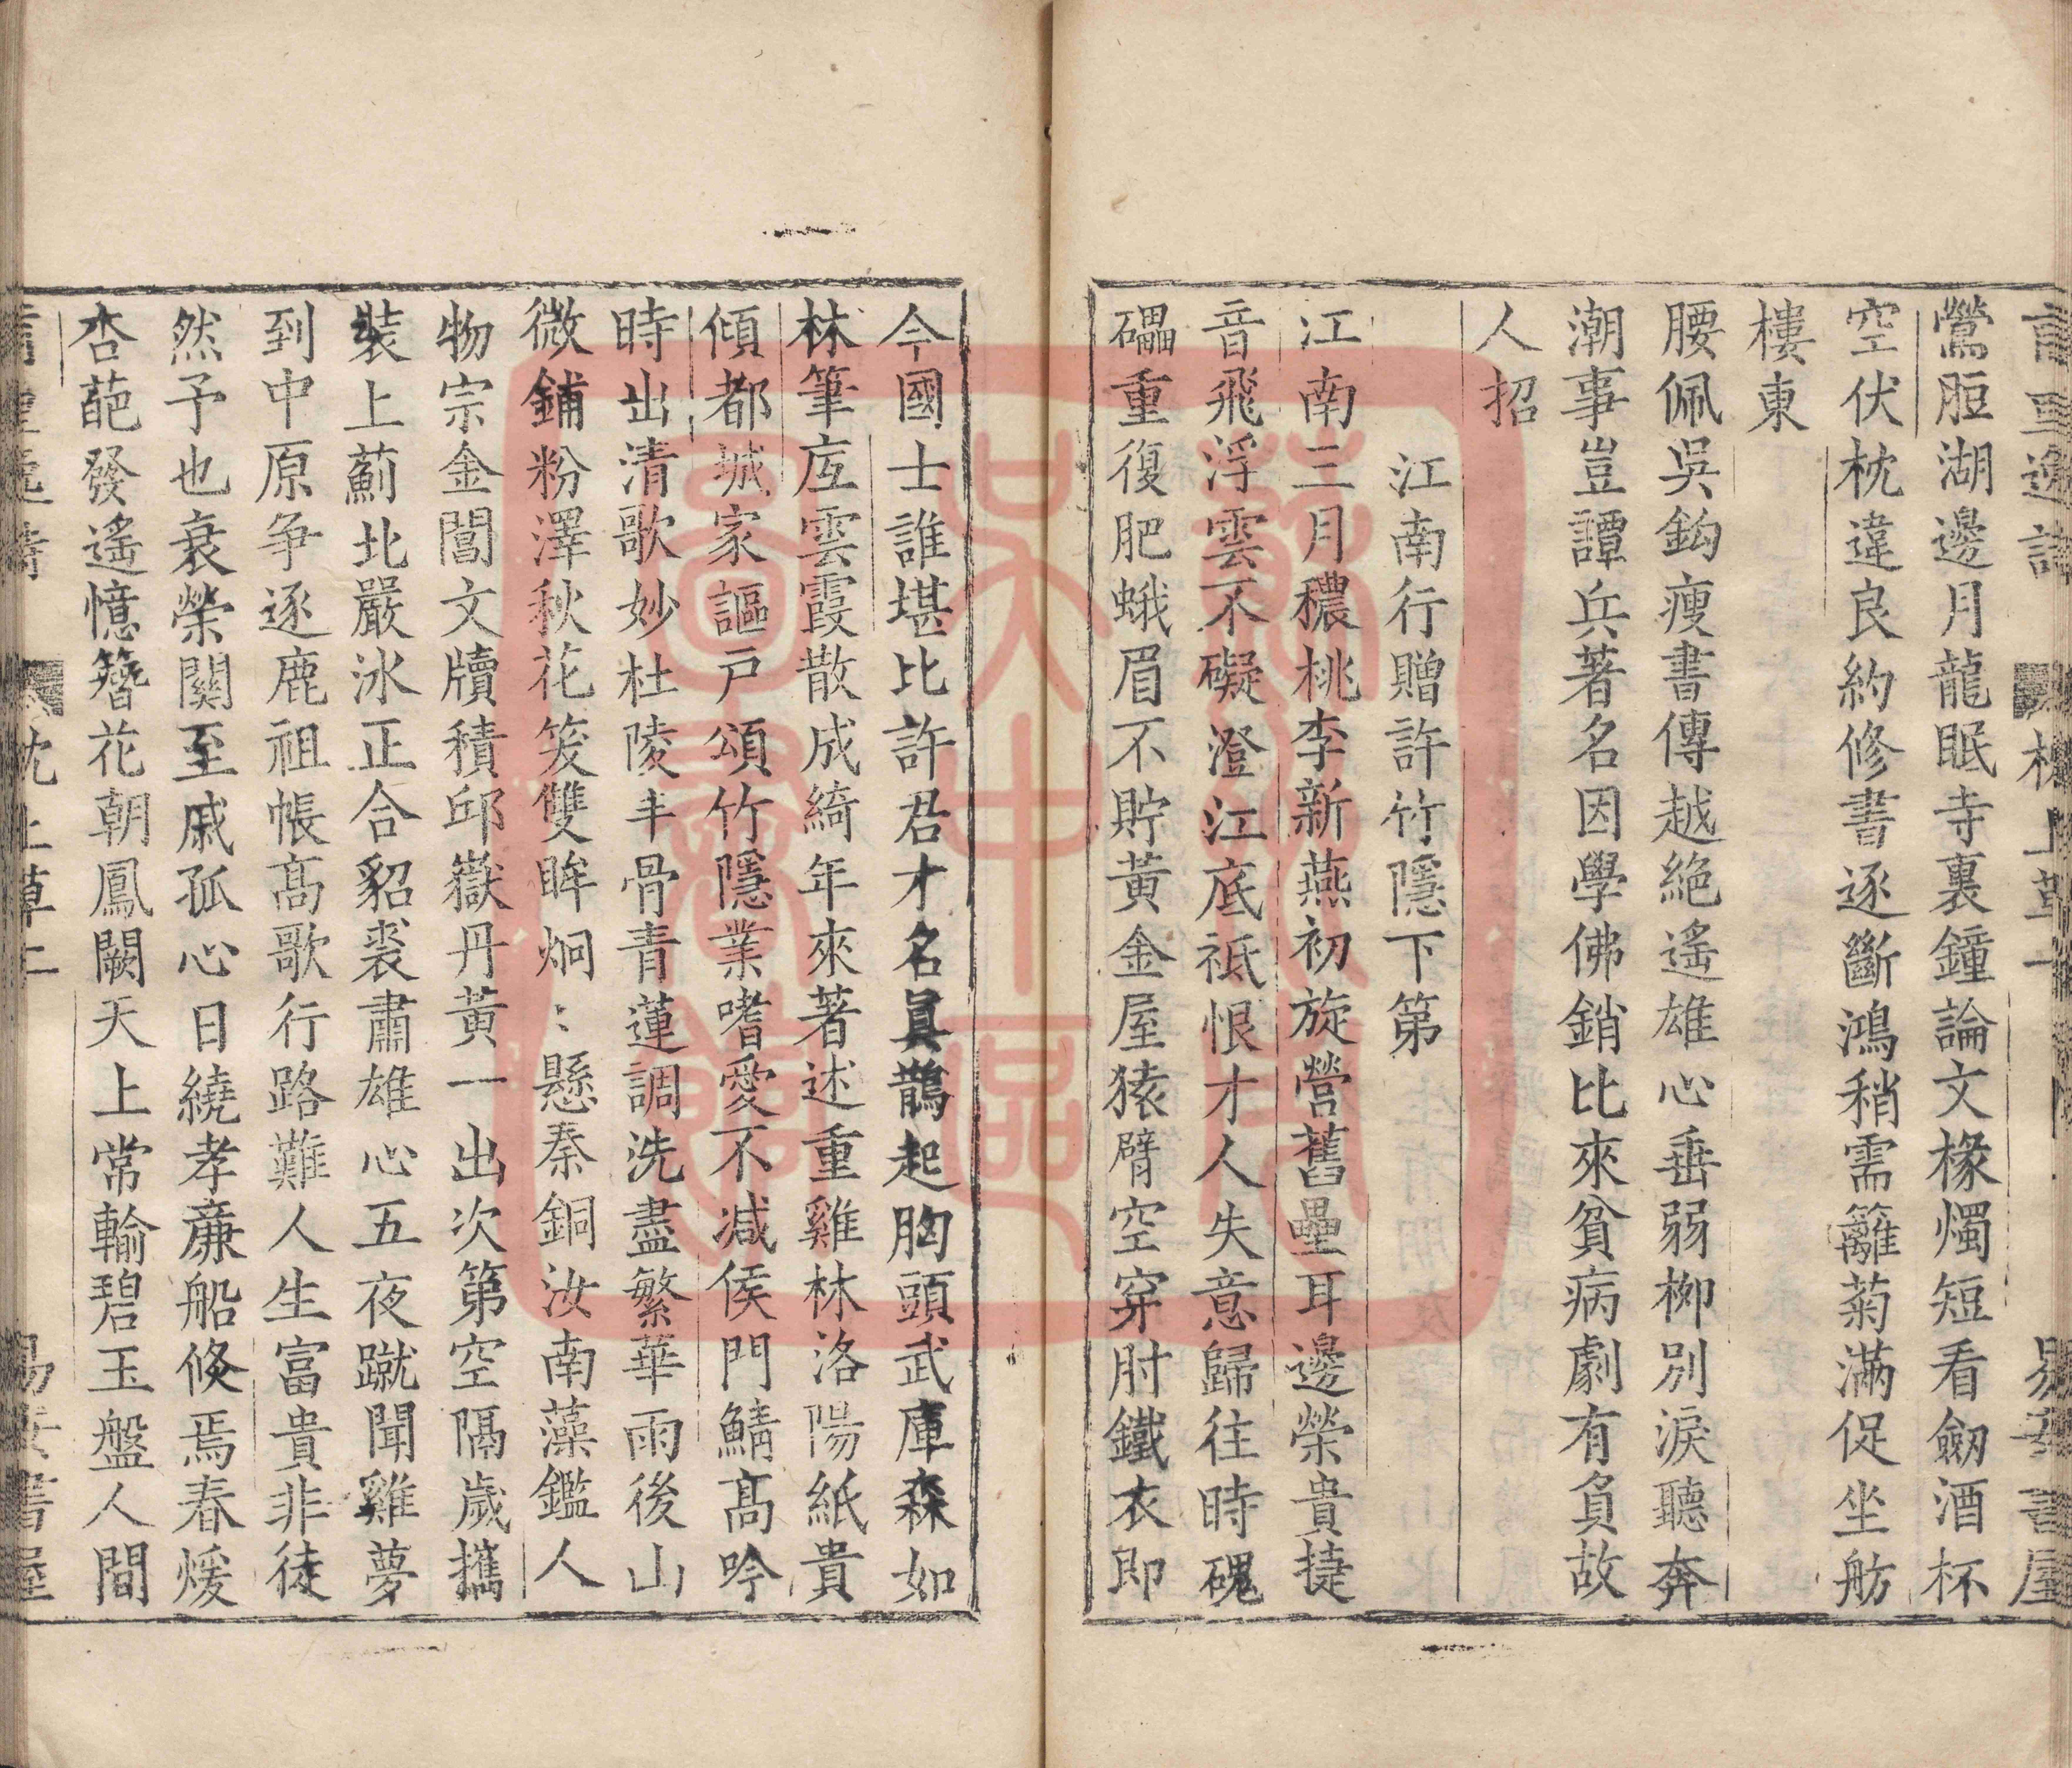 鶯脰湖邊月龍眠寺裏鐘論文椽燭短看劒酒杯
空伏枕違良約修書逐斷鴻稍需籬菊滿促坐舫
樓東
腰佩吳鈎瘦書傳越絶遙雄心垂弱柳別淚聽奔
潮事豈譚兵著名因學佛銷比來貧病劇有負故
人招
江南行贈許竹隱下第
江南三月穠桃李新燕初旋營舊壘耳邊榮貴捷
音飛浮雲不礙澄江底祗恨才人失意歸往時磈
礧重復肥蛾眉不貯黃金屋猿臂空穿肘鐵衣即
今國士誰堪比許君才名眞鵲起胸頭武庫森如
林筆底雲霞散成綺年來著述重雞林洛陽紙貴
傾都城家謳戶頌竹隱業嗜愛不減侯門鯖高吟
時出清歌妙杜陵丰骨青蓮調洗盡繁華雨後山
微鋪粉澤秋花笑雙眸炯〻懸秦銅汝南藻鑑人
物宗金閶文牘積邱嶽丹黃一出次第空隔歲攜
裝上薊北嚴冰正合貂裘肅雄心五夜蹴聞雞夢
到中原爭逐鹿祖帳高歌行路難人生富貴非徒
然予也衰榮關至戚孤心日繞孝廉船倏焉春煖
杏葩發遙憶簪花朝鳳闕天上常輸碧玉盤人間
枕上草
書屋